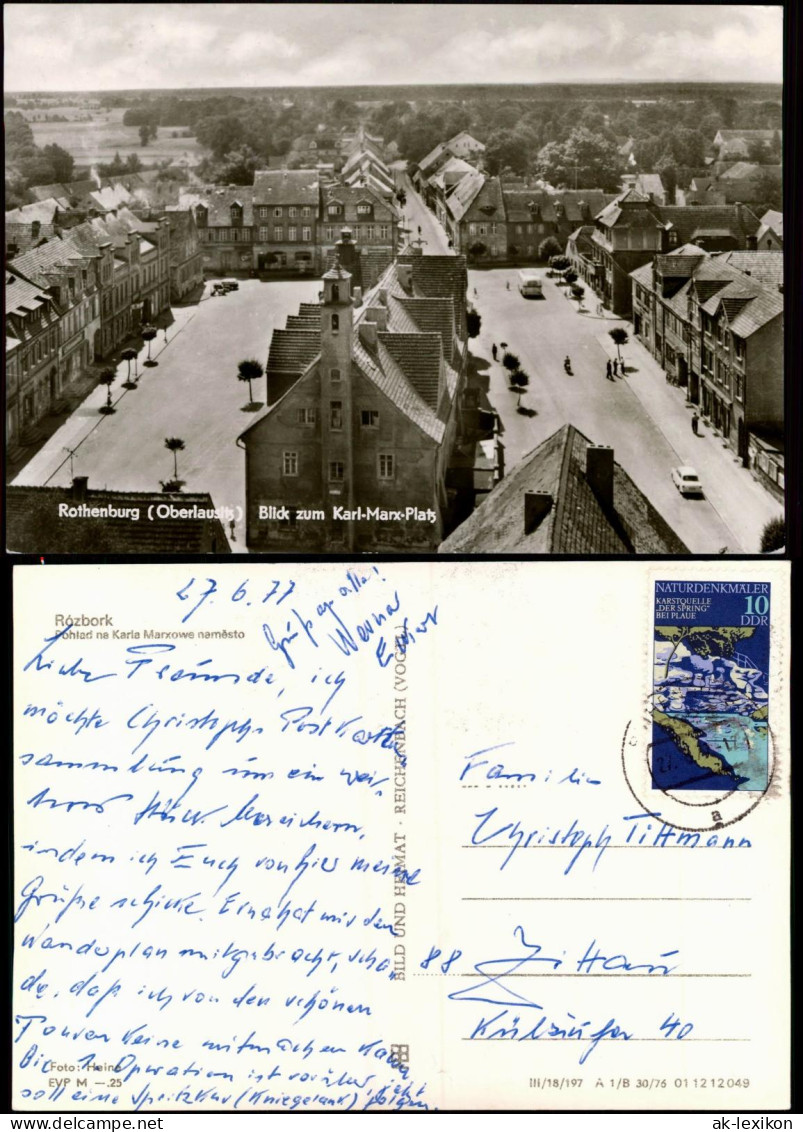 Rothenburg (Oberlausitz) Blick zum Karl-Marx-Platz
27. 6. 77
Grüße an alle!
Werner
Rózbork
Pohlad na Karla Marxowe naměsto
Liebe Freunde, ich
möchte Christophs Postkarten
sammlung um ein wei-
teres Stück bereichern,
indem ich Euch von hier meine
Grüße schicke. E hat mir den
Wanderplan mitgebracht, scha-
de, daß ich von den schönen
Touren keine mitmachen kann
Die 1. Operation ist vorüber, jetzt
soll eine Spritzkur (Kniegelenk) folgen.
Foto: Heine
EVP M —.25
BILD UND HEIMAT · REICHENBACH (VOGTL)
NATURDENKMÄLER
KARSTQUELLE 10
„DER SPRING" DDR
BEI PLAUE
a
Familie
Christoph Tittmann
88 Zittau
Külzufer 40
III/18/197 A 1/B 30/76 01 12 12 049
© ak-lexikon
ak-lexikon.com